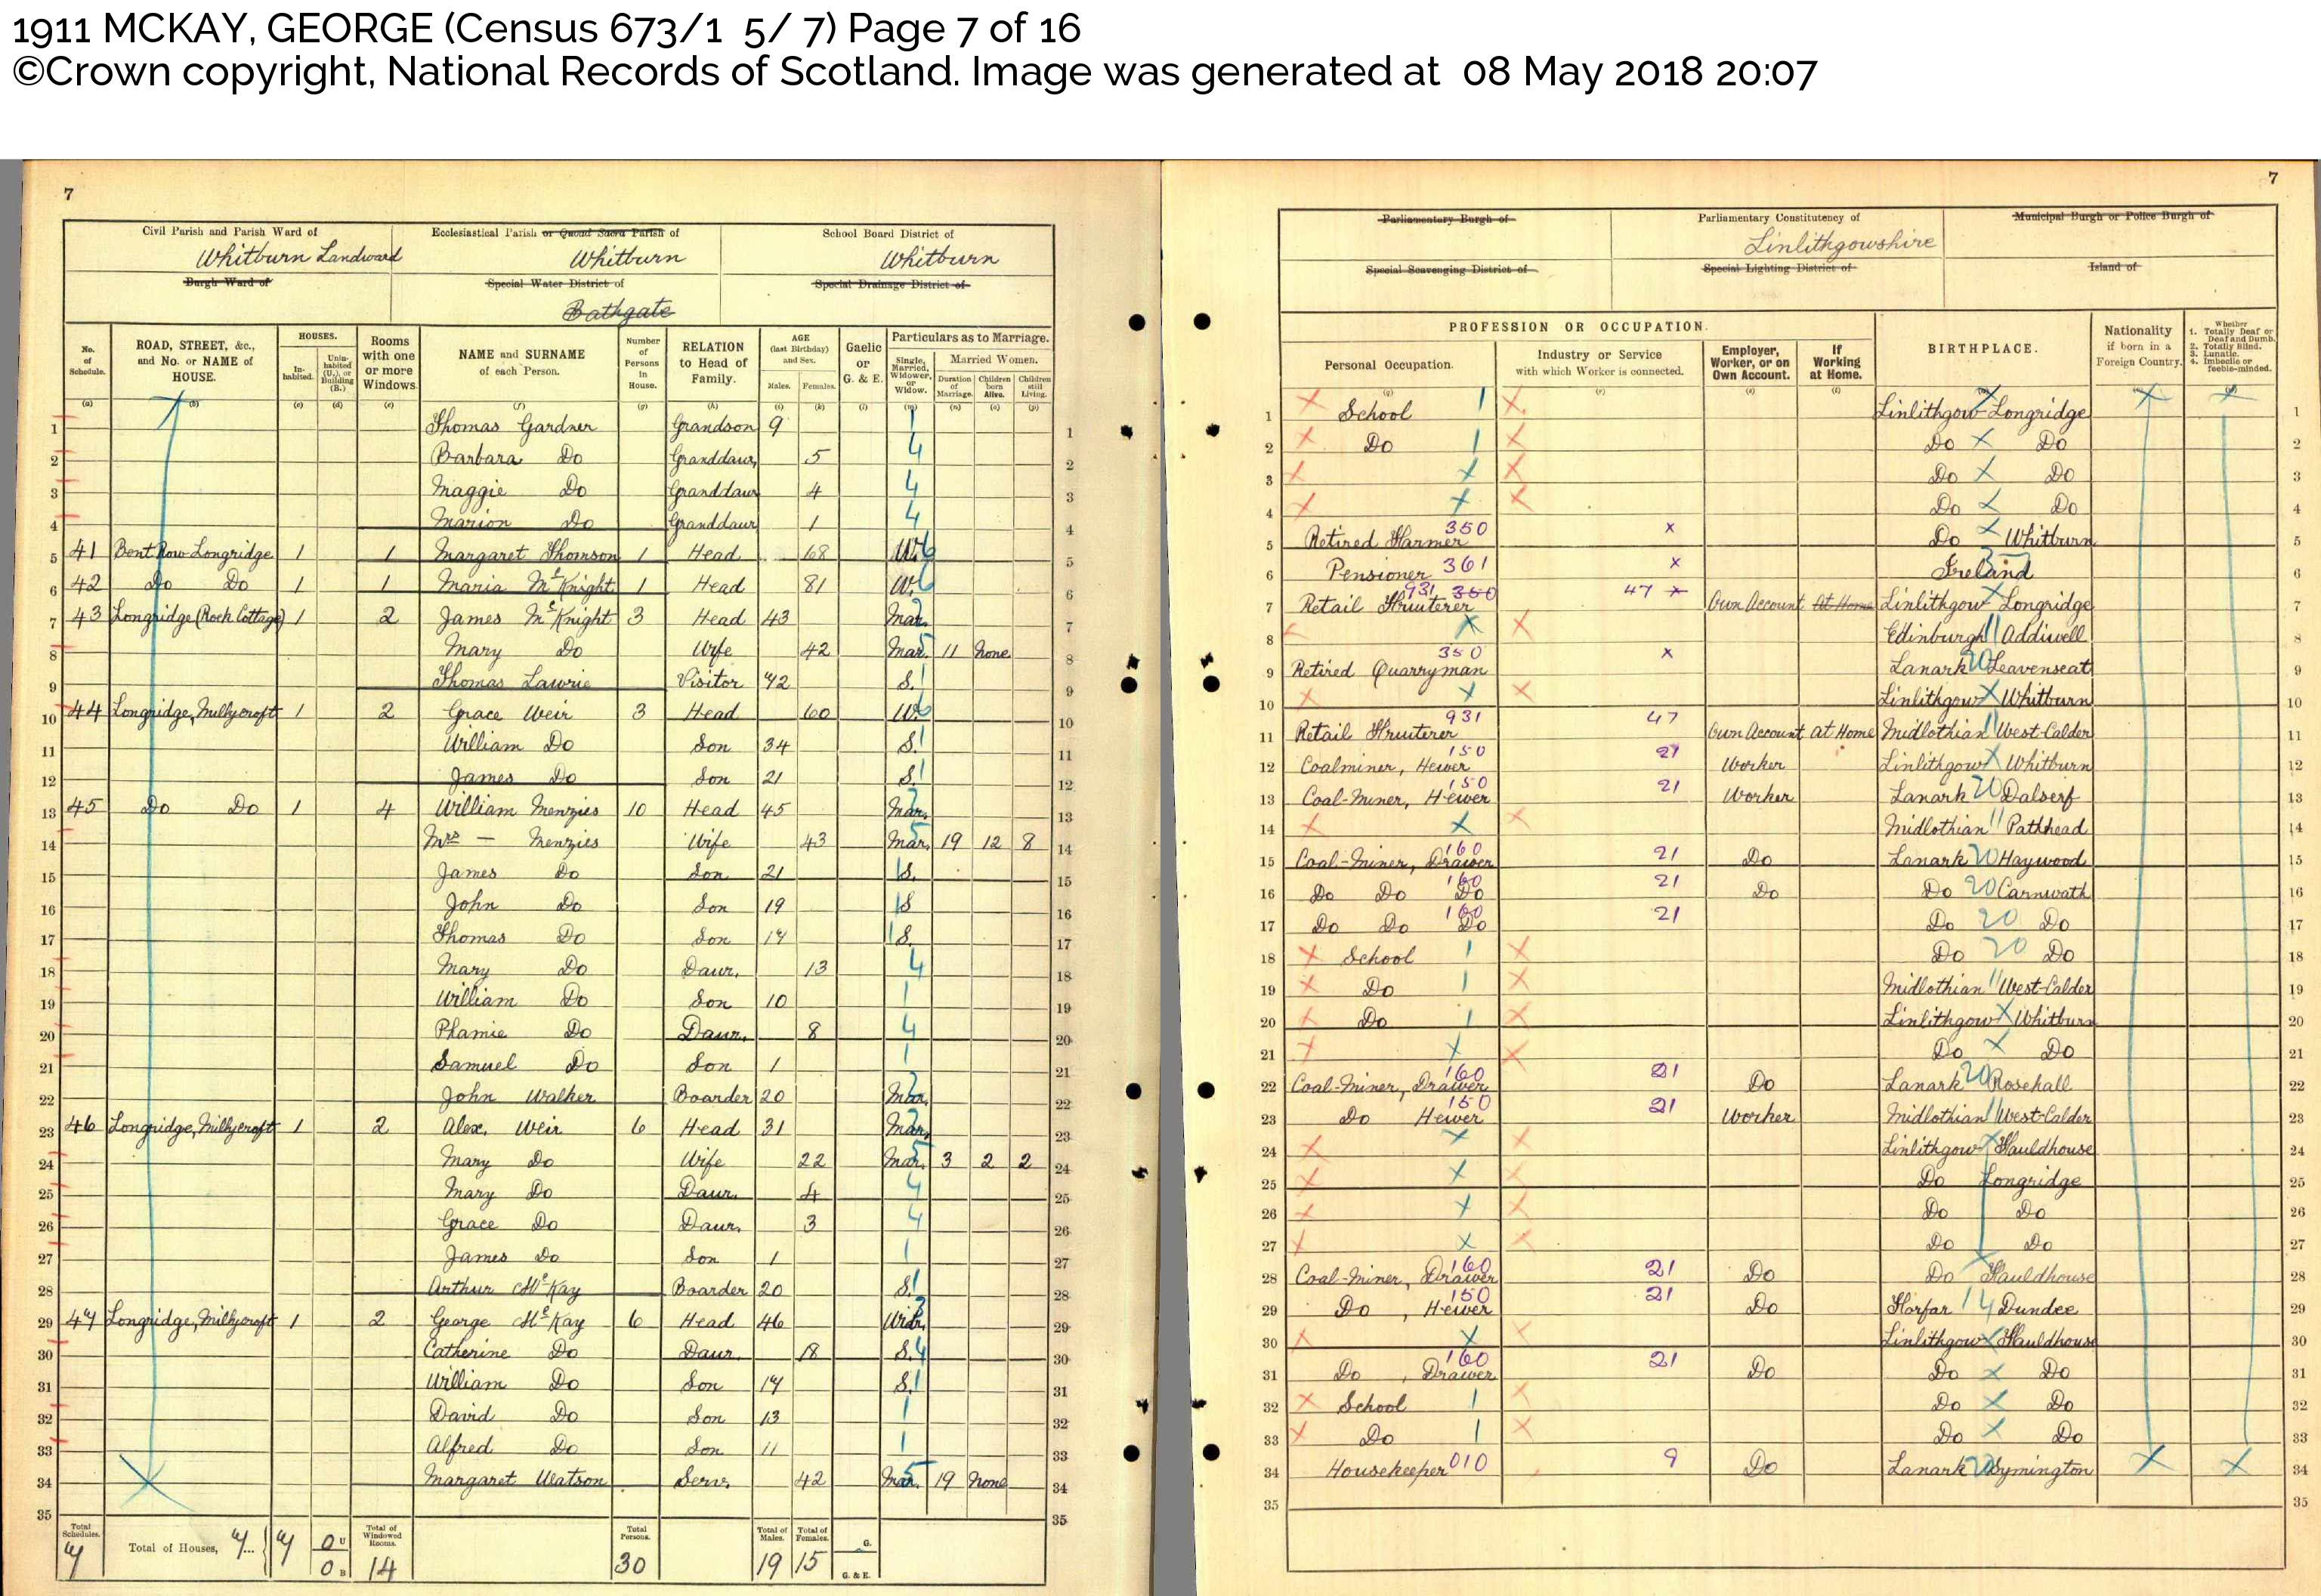 1911 MCKAY, GEORGE (Census 673/1 5/ 7) Page 7 of 16
©Crown copyright, National Records of Scotland. Image was generated at 08 May 2018 20:07
7
Civil Parish and Parish Ward of Ecclesiastical Parish or Quoad Sacra Parish of School Board District of
Whitburn Landward Whitburn Whitburn
Burgh Ward of Special Water District of Special Drainage District of
Bathgate
No. of Schedule. ROAD, STREET, &c., and No. or NAME of HOUSE. HOUSES. Inhabited. Uninhabited (U.), or Building (B.) Rooms with one or more Windows. NAME and SURNAME of each Person. Number of Persons in House. RELATION to Head of Family. AGE (last Birthday) and Sex. Males. Females. Gaelic or G. & E. Particulars as to Marriage. Single, Married, Widower, or Widow. Married Women. Duration of Marriage. Children born Alive. Children still Living.
(a) (b) (c) (d) (e) (f) (g) (h) (i) (k) (l) (m) (n) (o) (p)
1 Thomas Gardner Grandson 9 1 1
2 Barbara Do Granddaur. 5 4 2
3 Maggie Do Granddaur 4 4 3
4 Marion Do Granddaur 1 4 4
5 41 Bent Row Longridge 1 1 Margaret Thomson 1 Head 68 W. 6 5
6 42 Do Do 1 1 Maria McKnight 1 Head 81 W. 6 6
7 43 Longridge (Rock Cottage) 1 2 James McKnight 3 Head 43 Mar. 2 7
8 Mary Do Wife 42 Mar. 5 11 None 8
9 Thomas Lawrie Visitor 72 S. 1 9
10 44 Longridge, Millycroft 1 2 Grace Weir 3 Head 60 W. 6 10
11 William Do Son 34 S. 1 11
12 James Do Son 21 S. 1 12
13 45 Do Do 1 4 William Menzies 10 Head 45 Mar. 2 13
14 Mrs — Menzies Wife 43 Mar. 5 19 12 8 14
15 James Do Son 21 1 S. 15
16 John Do Son 19 1 S 16
17 Thomas Do Son 17 1 S. 17
18 Mary Do Daur. 13 4 18
19 William Do Son 10 1 19
20 Phamie Do Daur. 8 4 20
21 Samuel Do Son 1 1 21
22 John Walker Boarder 20 Mar. 2 22
23 46 Longridge, Millycroft 1 2 Alex. Weir 6 Head 31 Mar. 2 23
24 Mary Do Wife 22 Mar. 5 3 2 2 24
25 Mary Do Daur. 4 4 25
26 Grace Do Daur. 3 4 26
27 James Do Son 1 1 27
28 Arthur McKay Boarder 20 S. 1 28
29 47 Longridge, Millycroft 1 2 George McKay 6 Head 46 Widr. 3 29
30 Catherine Do Daur. 18 S. 4 30
31 William Do Son 17 S. 1 31
32 David Do Son 13 1 32
33 Alfred Do Son 11 1 33
34 Margaret Watson Serv. 42 Mar. 5 19 None 34
35 35
Total Schedules. 7 Total of Houses, 7... 7 0 U 0 B Total of Windowed Rooms. 14 Total Persons. 30 Total of Males. 19 Total of Females. 15 G. G. & E.
7
Parliamentary Burgh of Parliamentary Constitutency of Municipal Burgh or Police Burgh of
Linlithgowshire
Special Scavenging District of Special Lighting District of Island of
PROFESSION OR OCCUPATION. BIRTHPLACE. Nationality if born in a Foreign Country. Whether 1. Totally Deaf or Deaf and Dumb. 2. Totally Blind. 3. Lunatic. 4. Imbecile or feeble-minded.
Personal Occupation. Industry or Service with which Worker is connected. Employer, Worker, or on Own Account. If Working at Home.
1 School 1 Linlithgow Longridge 1
2 Do 1 Do Do 2
3 Do Do 3
4 Do Do 4
5 Retired Farmer 350 Do Whitburn 5
6 Pensioner 361 Ireland 6
7 Retail Fruiterer 931 350 47 Own Account At Home Linlithgow Longridge 7
8 Edinburgh 11 Addiwell 8
9 Retired Quarryman 350 Lanark 20 Leavenseat 9
10 Linlithgow Whitburn 10
11 Retail Fruiterer 931 47 Own Account At Home Midlothian 11 West-Calder 11
12 Coalminer, Hewer 150 21 Worker Linlithgow Whitburn 12
13 Coal-Miner, Hewer 150 21 Worker Lanark 20 Dalserf 13
14 Midlothian 11 Pathhead 14
15 Coal-Miner, Drawer 160 21 Do Lanark 20 Haywood 15
16 Do Do Do 160 21 Do Do 20 Carnwath 16
17 Do Do Do 160 21 Do 20 Do 17
18 School 1 Do 20 Do 18
19 Do 1 Midlothian 11 West-Calder 19
20 Do 1 Linlithgow Whitburn 20
21 Do Do 21
22 Coal-Miner, Drawer 160 21 Do Lanark 20 Rosehall 22
23 Do Hewer 150 21 Worker Midlothian 11 West-Calder 23
24 Linlithgow Fauldhouse 24
25 Do Longridge 25
26 Do Do 26
27 Do Do 27
28 Coal-Miner, Drawer 160 21 Do Do Fauldhouse 28
29 Do, Hewer 150 21 Do Forfar 14 Dundee 29
30 Linlithgow Fauldhouse 30
31 Do, Drawer 160 21 Do Do Do 31
32 School 1 Do Do 32
33 Do 1 Do Do 33
34 Housekeeper 010 9 Do Lanark 20 Symington 34
35 35